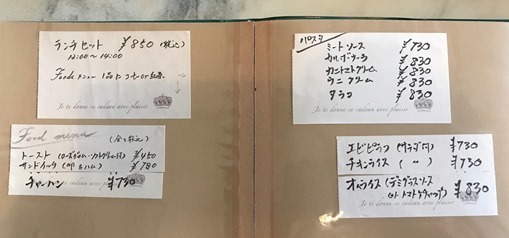 ランチセット ¥850 (税込)
12:00〜14:00
Foodメニュー1品にコーヒーor紅茶
Je te donne ce cadeau avec plaisir
Food menu (全て税込)
トースト(ロースハム・カルトクリーム付) ¥450
サンドイッチ(卵&ハム) ¥780
チャーハン ¥730
パスタ
ミートソース ¥730
カルボナーラ ¥830
カニトマトクリーム ¥830
ウニクリーム ¥830
タラコ ¥830
Je te donne ce cadeau avec plaisir
エビピラフ(サラダ付) ¥730
チキンライス( 〃 ) ¥730
オムライス(デミグラスソース ¥830
orトマトケチャップ)